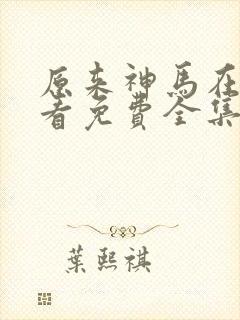 原来神马在
看免费全集
葉熙祺